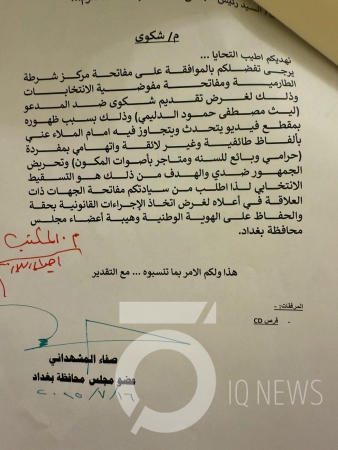 السيد رئيس
م/ شكوى
نهديكم اطيب التحايا ...
يرجى تفضلكم بالموافقة على مفاتحة مركز شرطة
الطارمية ومفاتحة مفوضية الانتخابات
وذلك لغرض تقديم شكوى ضد المدعو
(ليث مصطفى حمود الدليمي) وذلك بسبب ظهوره
بمقطع فيديو يتحدث ويتجاوز فيه امام الملاء عني
بألفاظ طائفية وغير لائقة واتهامي بمفردة
(حرامي وبائع للسنه ومتاجر بأصوات المكون) وتحريض
الجمهور ضدي والهدف من ذلك هو التسقيط
الانتخابي لذا اطلب من سيادتكم مفاتحة الجهات ذات
العلاقة في أعلاه لغرض اتخاذ الإجراءات القانونية بحقة
والحفاظ على الهوية الوطنية وهيبة أعضاء مجلس
محافظة بغداد.
هذا ولكم الامر بما تنسبوه ... مع التقدير
م. المكتب
المرفقات:-
- قرص CD
صفاء المشهداني
عضو مجلس محافظة بغداد
٢٠٢٥/٧/١٦
IQ NEWS